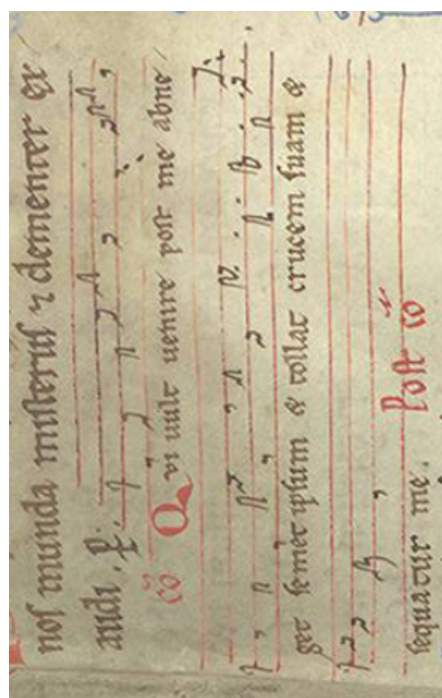 nos munda misteriis ⁊ clementer ex
audi. P.
cō Qui uult uenire post me abne
get semet ipsum & tollat crucem suam &
sequatur me. Post cō